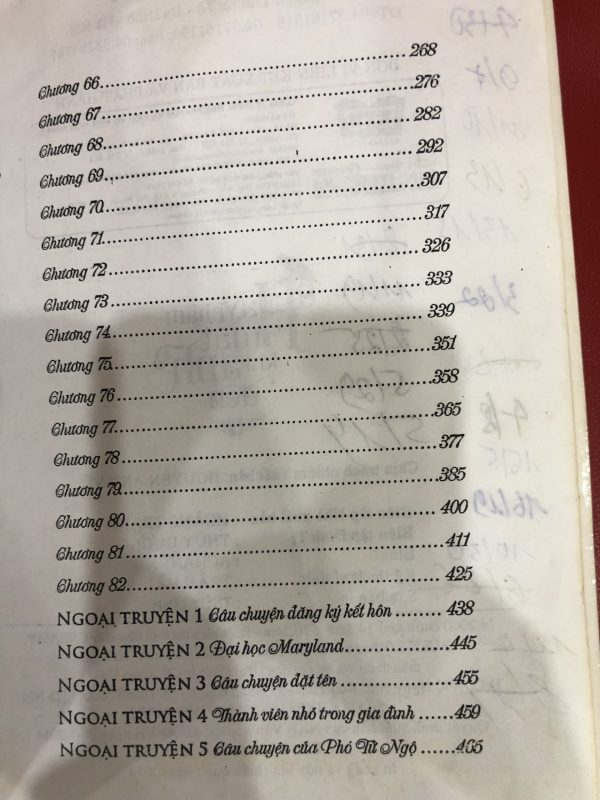 Chương 66 268
Chương 67 276
Chương 68 282
Chương 69 292
Chương 70 307
Chương 71 317
Chương 72 326
Chương 73 333
Chương 74 339
Chương 75 351
Chương 76 358
Chương 77 365
Chương 78 377
Chương 79 385
Chương 80 400
Chương 81 411
Chương 82 425
NGOẠI TRUYỆN 1 Câu chuyện đăng ký kết hôn 438
NGOẠI TRUYỆN 2 Đại học Maryland 445
NGOẠI TRUYỆN 3 Câu chuyện đặt tên 455
NGOẠI TRUYỆN 4 Thành viên nhỏ trong gia đình 459
NGOẠI TRUYỆN 5 Câu chuyện của Phó Tử Ngộ 465